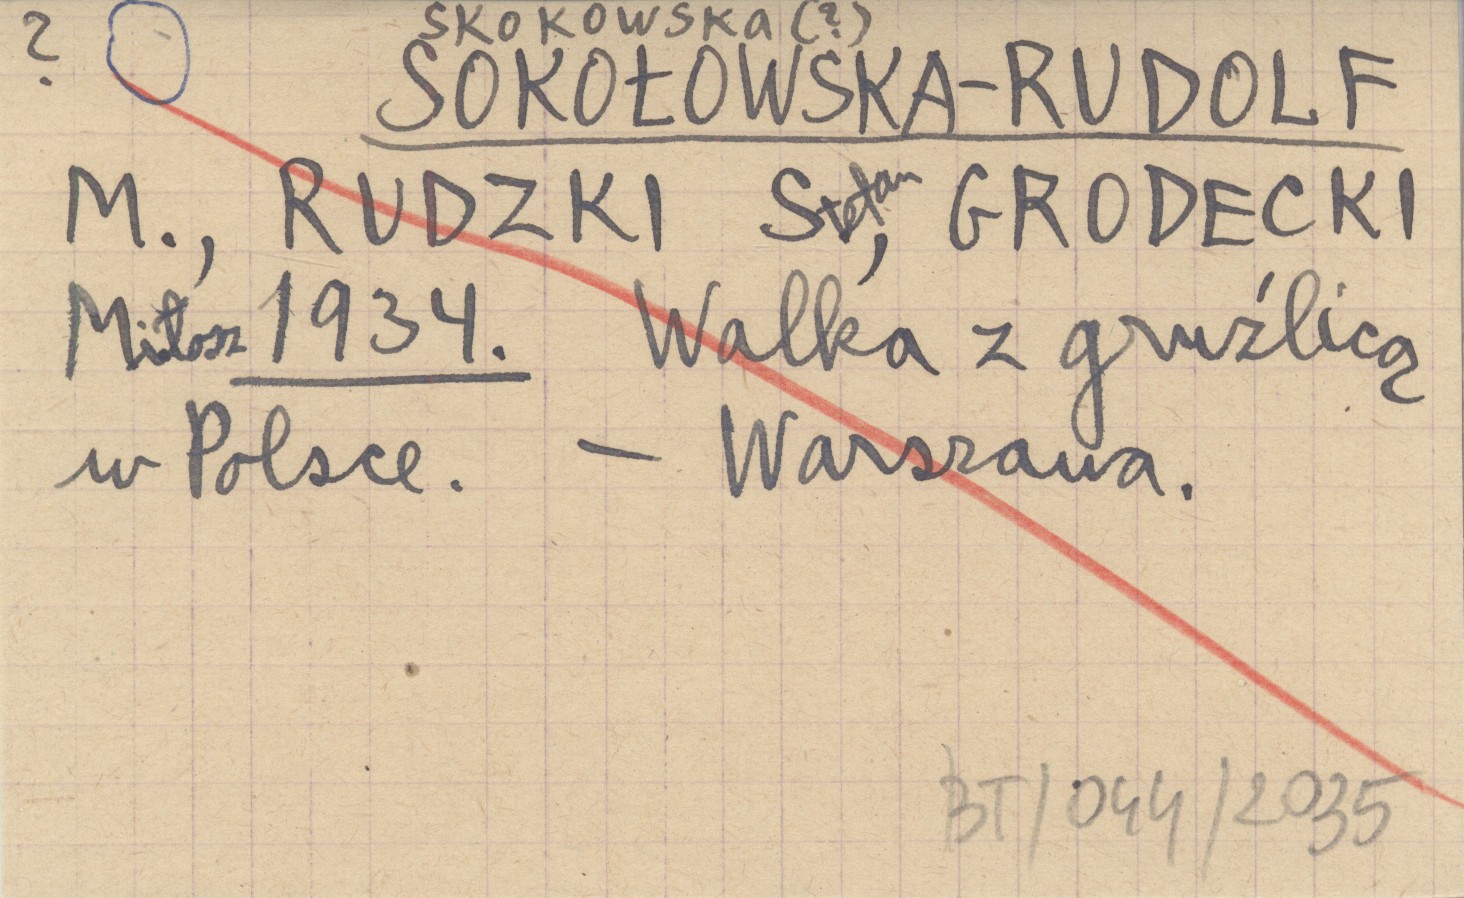 ?
SKOKOWSKA (?)
SOKOŁOWSKA-RUDOLF
M., RUDZKI Stefan, GRODECKI
Miłosz 1934. Walka z gruźlicą
w Polsce. — Warszawa.
BT/044/2035